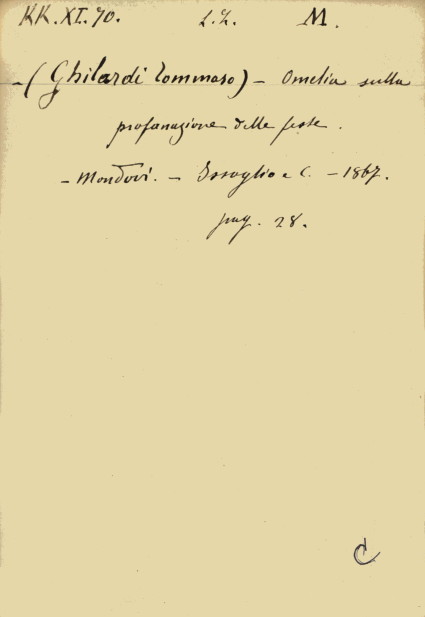 KK.XI.70. L.L. M.
- (Ghilardi Tommaso) - Omelia sulla
profanazione delle feste.
- Mondovì. - Issoglio e C. - 1867.
pag. 28.
C